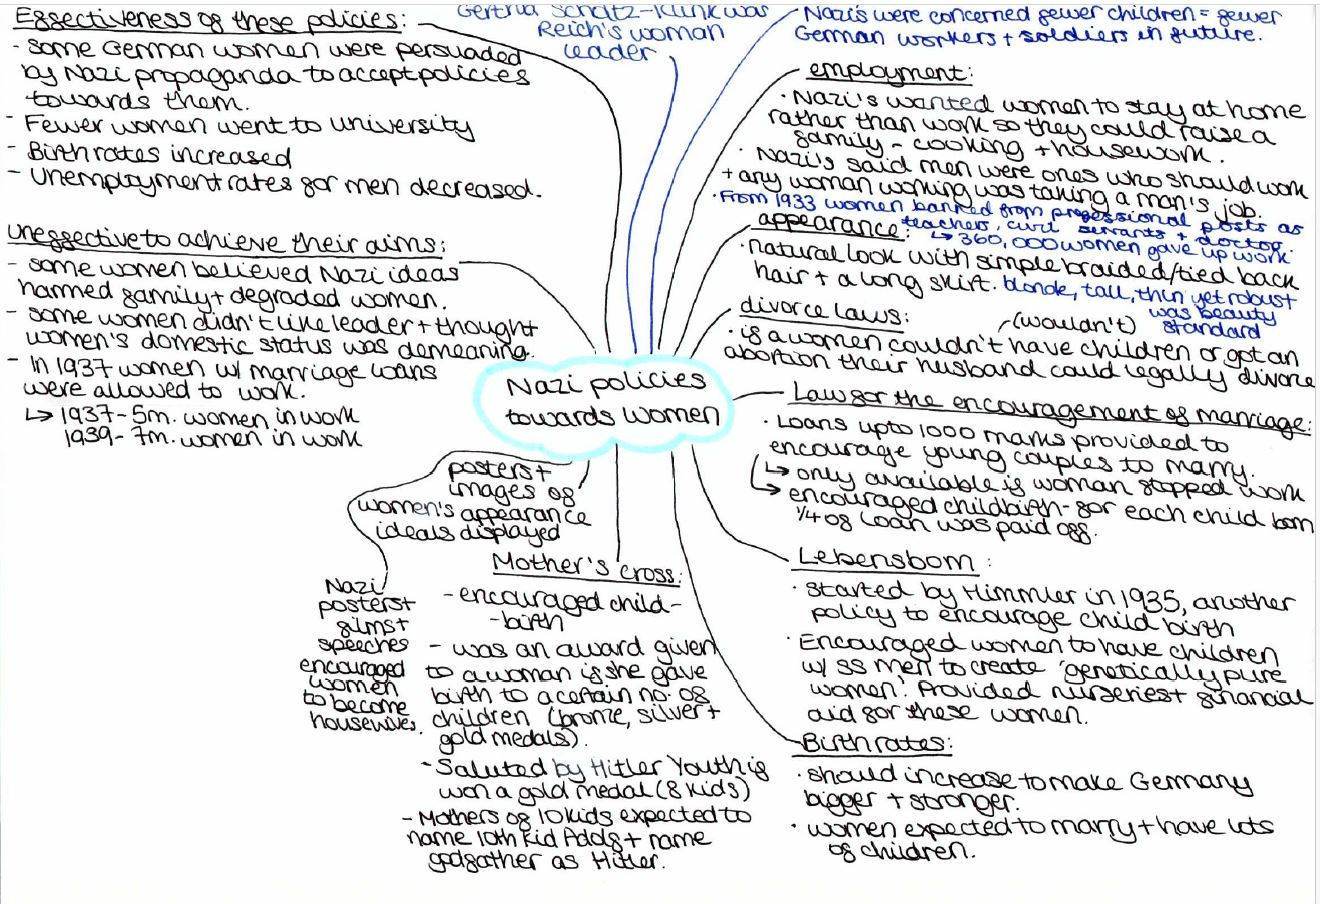 Effectiveness of these policies:
- some German women were persuaded
by Nazi propaganda to accept policies
towards them.
- Fewer women went to university
- Birth rates increased
- Unemployment rates for men decreased.
uneffective to achieve their aims:
- some women believed Nazi ideas
harmed family + degraded women.
- some women didn't like leader + thought
women's domestic status was demeaning.
- In 1937 women w/ marriage loans
were allowed to work.
↳ 1937 - 5m. women in work
1939 - 7m. women in work
Gertrud Scholtz-Klink was
Reich's woman
leader
Nazis were concerned fewer children = fewer
German workers + soldiers in future.
employment:
· Nazi's wanted women to stay at home
rather than work so they could raise a
family - cooking + housework.
· Nazi's said men were ones who should work
+ any woman working was taking a man's job.
· From 1933 women banned from professional posts as
teachers, civil servants + doctor.
↳ 360,000 women gave up work
appearance:
· natural look with simple braided/tied back
hair + a long skirt. blonde, tall, thin yet robust
was beauty
standard
divorce laws:
(wouldn't)
· if a women couldn't have children or got an
abortion their husband could legally divorce
Nazi policies
towards women
Law for the encouragement of marriage:
· Loans upto 1000 marks provided to
encourage young couples to marry.
↳ only available if woman stopped work
↳ encouraged childbirth - for each child born
1/4 of loan was paid off.
Lebensborn:
· started by Himmler in 1935, another
policy to encourage child birth
· Encouraged women to have children
w/ SS men to create 'genetically pure
women'. Provided nurseries + financial
aid for these women.
Birth rates:
· should increase to make Germany
bigger + stronger.
· women expected to marry + have lots
of children.
posters +
images of
women's appearance
ideals displayed
Nazi
posters +
films +
speeches
encouraged
women
to become
housewives.
Mother's cross:
- encouraged child-
-birth
- was an award given
to a woman if she gave
birth to a certain no. of
children (bronze, silver +
gold medals).
- Saluted by Hitler Youth if
won a gold medal (8 kids)
- Mothers of 10 kids expected to
name 10th kid Adolf + name
godfather as Hitler.